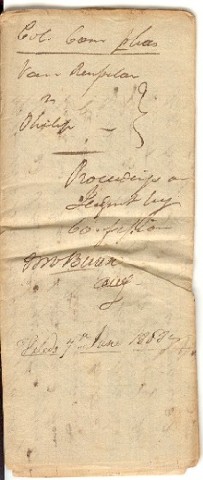 Col. Com pleas
Van Renselar
vs
Philip
Proceedings on
Judgmt by
Confession
M V Buren
atty
Filed 7th June 1808